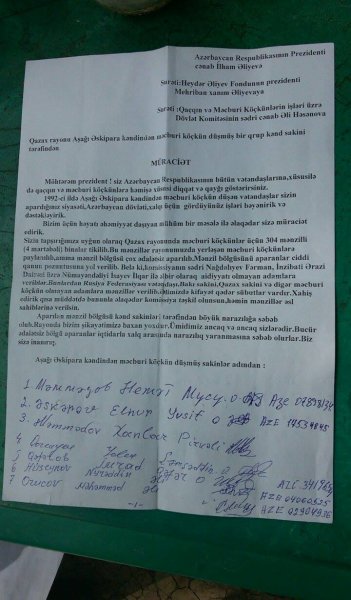 Azərbaycan Respublikasının Prezidenti
cənab İlham Əliyevə
Surəti:Heydər Əliyev Fondunun prezidenti
Mehriban xanım Əliyevaya
Surəti :Qaçqın və Məcburi Köçkünlərin işləri üzrə
Dövlət Komitəsinin sədri cənab Əli Həsənova
Qazax rayonu Aşağı Əskipara kəndindən məcburi köçkün düşmüş bir qrup kənd sakini
tərəfindən
MÜRACİƏT
Möhtərəm prezident ! siz Azərbaycan Respublikasının bütün vətəndaşlarına,xüsusilə
də qaçqın və məcburi köçkünlərə həmişə xüsusi diqqət və qayğı göstərirsiniz.
1992-ci ildə Aşağı Əskipara kəndindən məcburi köçkün düşən vətəndaşlar sizin
apardığınız siyasəti,Azərbaycan dövləti,xalqı üçün gördüyünüz işləri bəyənirik və
dəstəkləyirik.
Bizim üçün həyati əhəmiyyət daşıyan mühüm bir məsələ ilə əlaqədar sizə müraciət
edirik.
Sizin tapşırığınıza uyğun olaraq Qazax rayonunda məcburi köçkünlər üçün 304 mənzilli
(4 mərtəbəli) binalar tikilib.Bu mənzillər rayonumuzda yerləşən məcburi köçkünlərə
paylanılıb,amma mənzil bölgüsü çox ədalətsiz aparılıb. Mənzil bölgüsünü aparanlar ciddi
qanun pozuntusuna yol verilib. Belə ki,komissiyanın sədri Nağdəliyev Fərman, İnzibati Ərazi
Dairəsi üzrə Nümayəndəliyi İsayev İlqar ilə əlbir olaraq aidiyyatı olmayan adamlara
verilib.Bunlardan Rusiya Federasiyası vətəndaşı,Bakı sakini,Qazax sakini və digər məcburi
köçkün olmayan adamlara mənzillər verilib.Əlimizdə kifayət qədər sübutlar vardır.Xahiş
edirik qısa müddətdə bununla əlaqədar komissiya təşkil olunsun,həmin mənzillər əsl
sahiblərinə verilsin.
Aparılan mənzil bölgüsü kənd sakinləri tərəfindən böyük narazılığa səbəb
olub.Rayonda bizim şikayətimizə baxan yoxdur.Ümidimiz ancaq və ancaq sizlərədir.Bu cür
ədalətsiz bölgü aparanlar iqtidarla xalq arasında narazılıq yaranmasına səbəb olurlar.Biz
sizə inanırıq.
Aşağı Əskipara kəndindən məcburi köçkün düşmüş sakinlər adından :
1
2. Əskərov Elnur Yusif o AZE 14534845
3. Məmmədov Xanlar Pirvəli
4
5
6 Hüseynov Nurəddin
7 Orucov Məhəmməd AZE 02904936
-1-